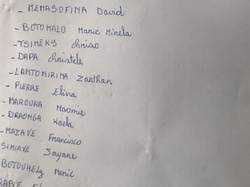 - MEMASOFINA David
- BOTOMALO Marie Minela
- TSIMEKY
- DAPA Christele
- LANTOMIRINA Zonthan
- PIERRE Elina
- MAROURA Naomie
- DRAONGA Kada
- MAZAVE Francisco
SIMIAVE Joyane
BOTOUHELY Monic